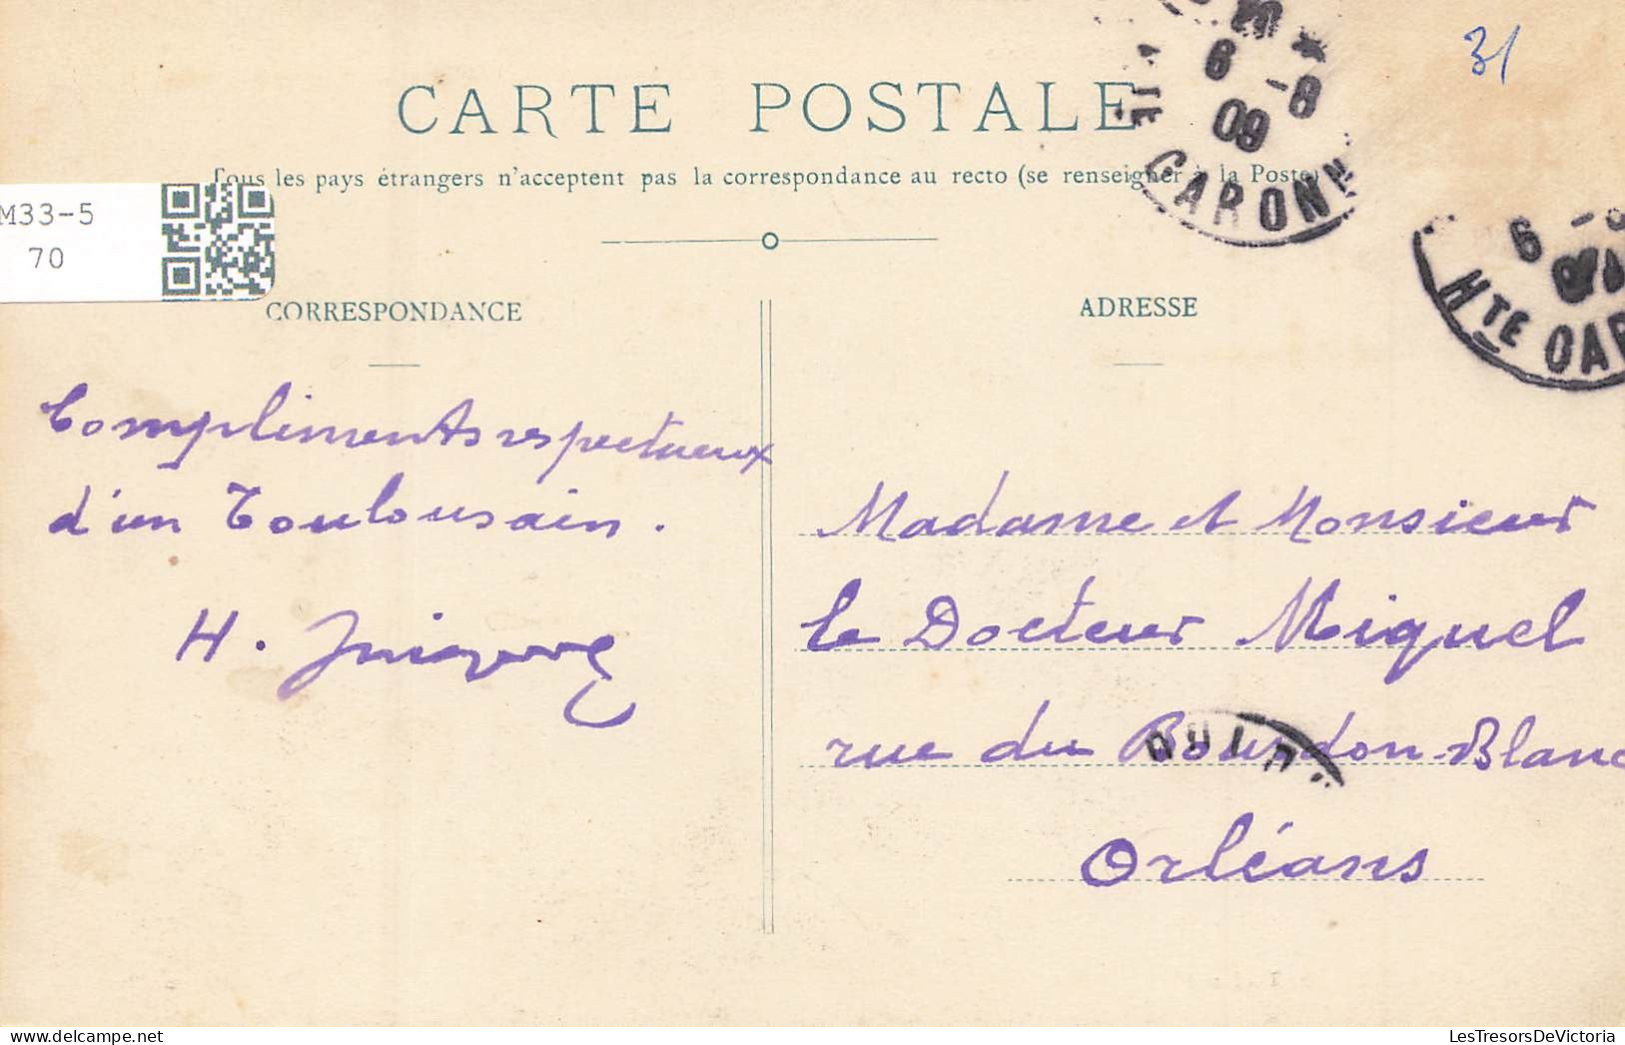 CARTE POSTALE
Tous les pays étrangers n'acceptent pas la correspondance au recto (se renseigner à la Poste)
31
6 -8
09
GARONN
6
HTE GAR
M33-5
70
CORRESPONDANCE
ADRESSE
Compliments respectueux
d'un Toulousain.
H.
Madame et Monsieur
le Docteur Miquel
rue du Bourdon-Blanc
Orléans
LesTresorsDeVictoria